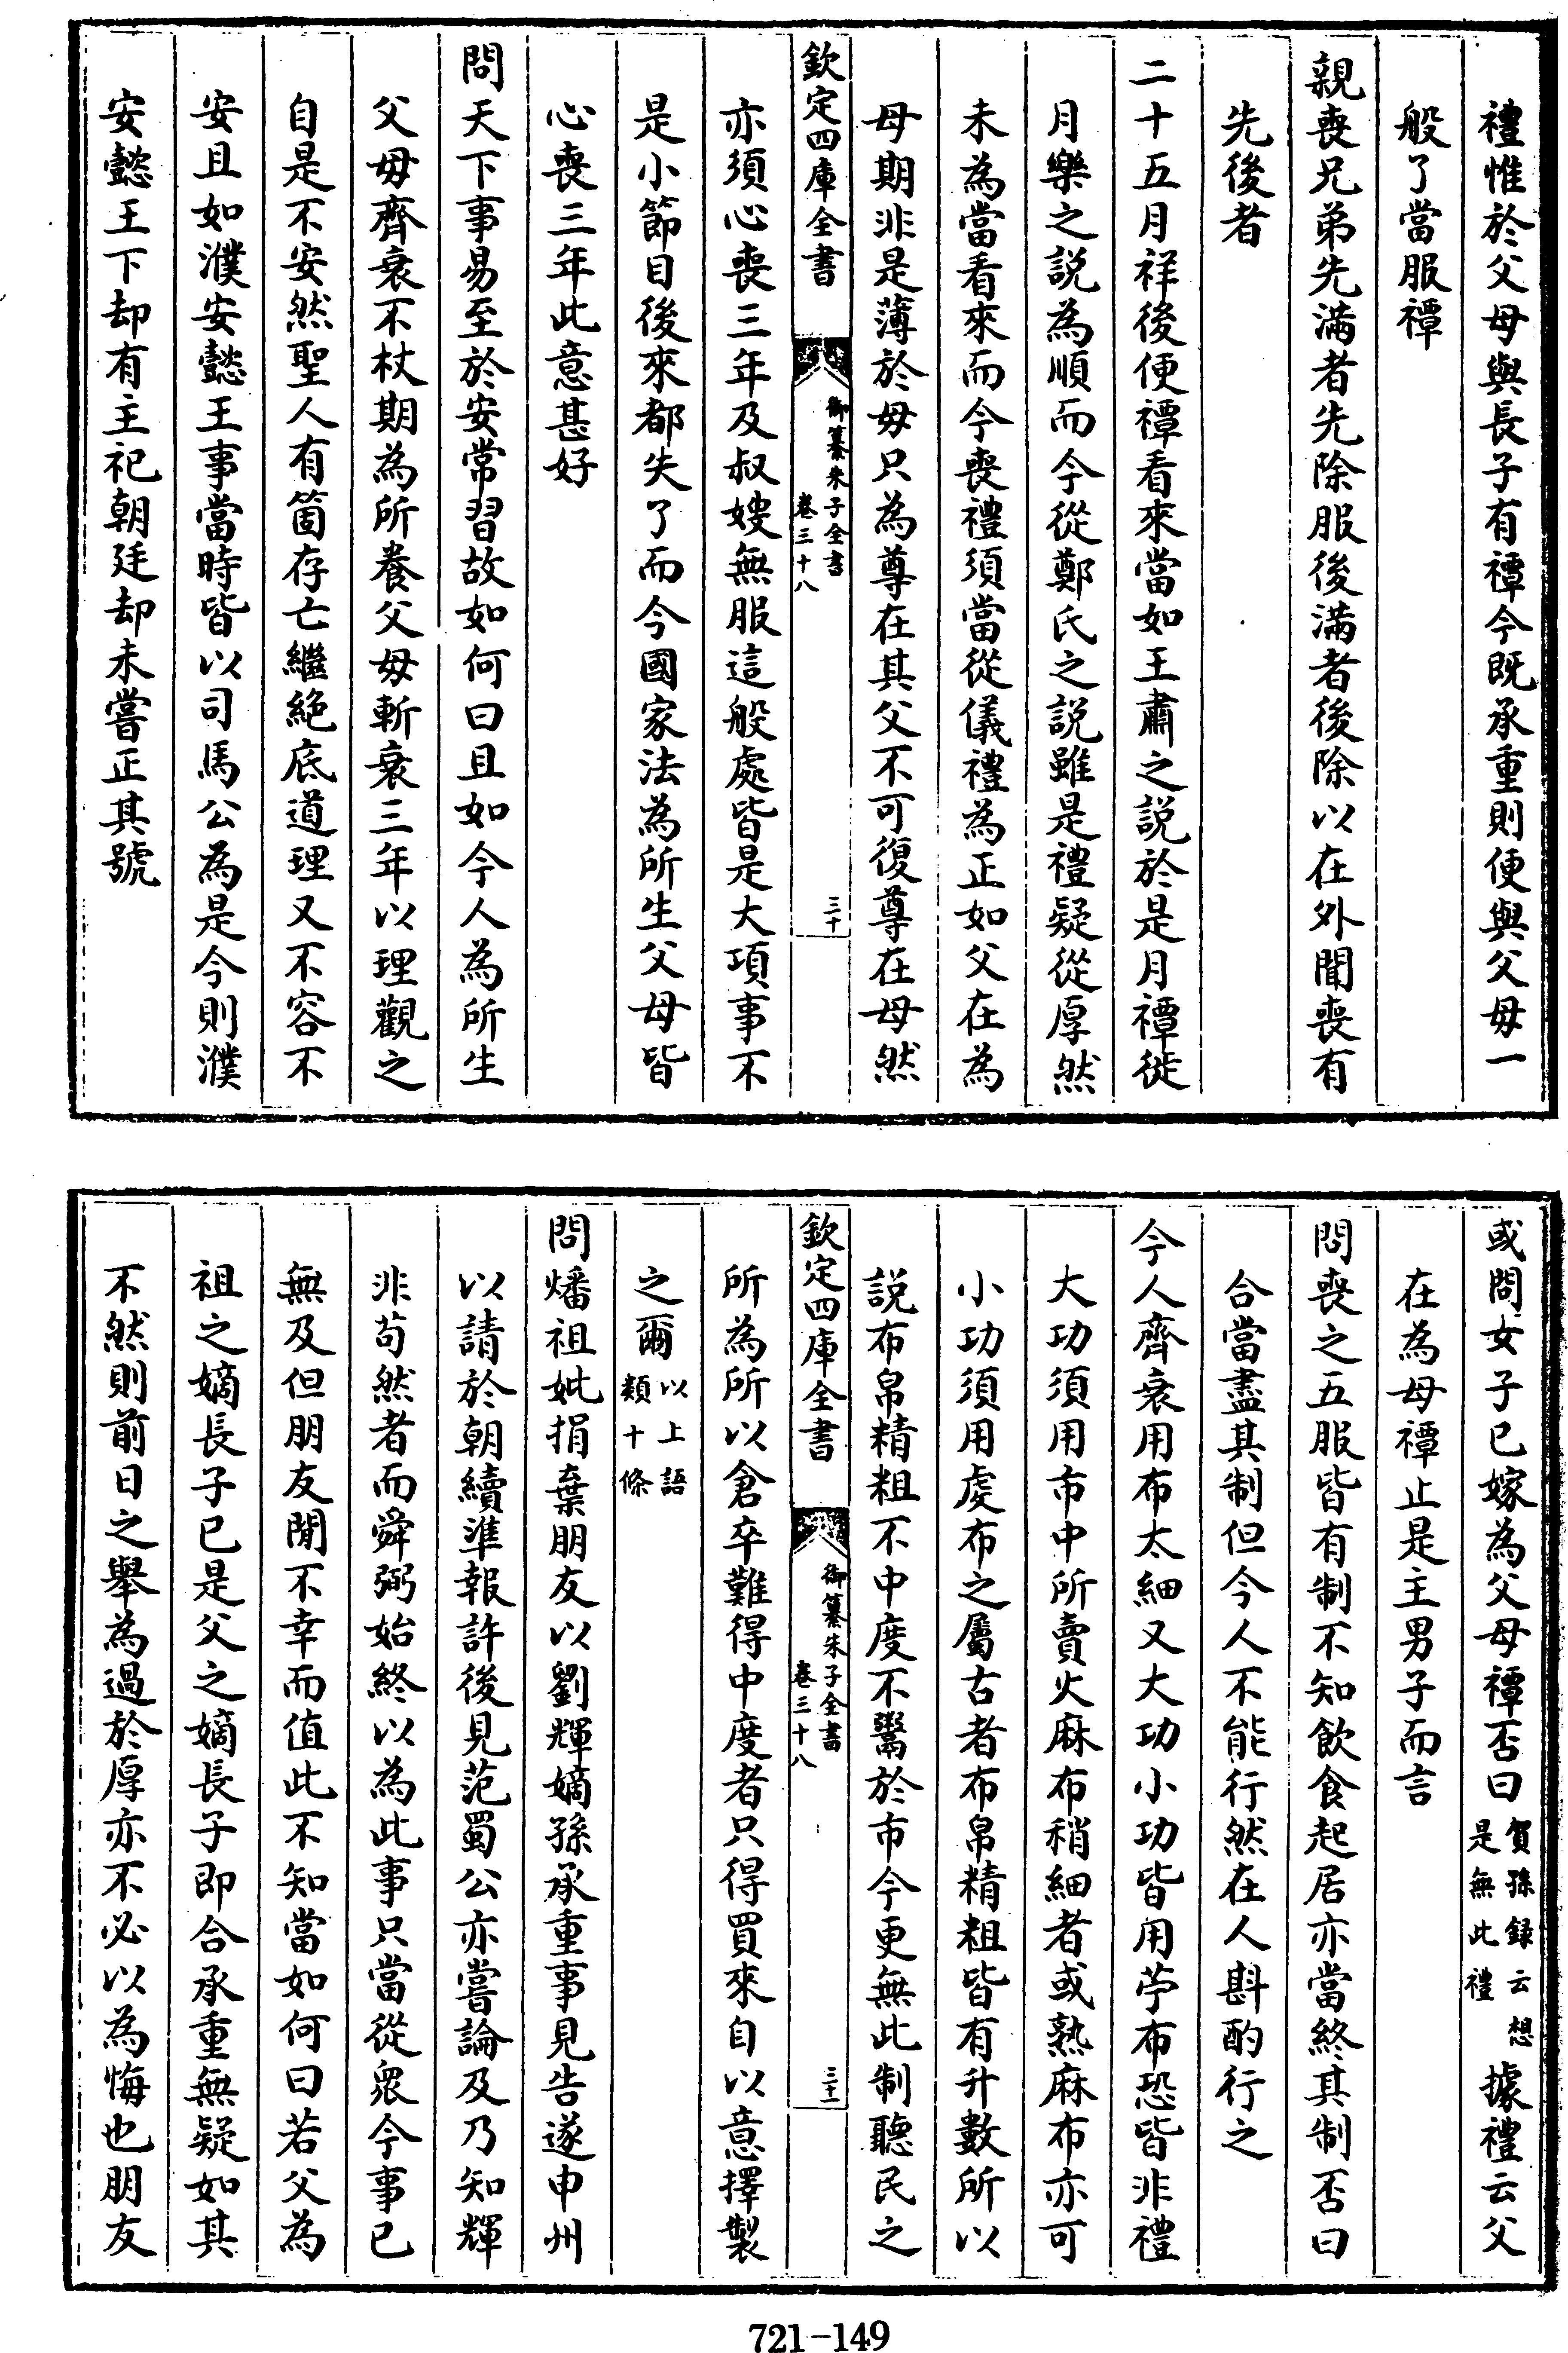 禮惟於父母與長子有禫今既承重則便與父母一
般了當服禫
親喪兄弟先滿者先除服後滿者後除以在外聞喪有
先後者
二十五月祥後便禫看來當如王肅之説於是月禫徙
月樂之説為順而今從鄭氏之説雖是禮疑從厚然
未為當看來而今喪禮須當從儀禮為正如父在為
母期非是薄於母只為尊在其父不可復尊在母然
欽定四庫全書
御纂朱子全書
卷三十八
三十
亦須心喪三年及叔嫂無服這般處皆是大項事不
是小節目後來都失了而今國家法為所生父母皆
心喪三年此意甚好
問天下事易至於安常習故如何曰且如今人為所生
父母齊衰不杖期為所養父母斬衰三年以理觀之
自是不安然聖人有箇存亡繼絶底道理又不容不
安且如濮安懿王事當時皆以司馬公為是今則濮
安懿王下却有主祀朝廷却未嘗正其號
或問女子已嫁為父母禫否曰賀孫録云想
是無此禮
據禮云父
在為母禫止是主男子而言
問喪之五服皆有制不知飲食起居亦當終其制否曰
合當盡其制但今人不能行然在人斟酌行之
今人齊衰用布太細又大功小功皆用苧布恐皆非禮
大功須用市中所賣火麻布稍細者或熟麻布亦可
小功須用䖍布之屬古者布帛精粗皆有升數所以
説布帛精粗不中度不鬻於市今更無此制聽民之
欽定四庫全書
御纂朱子全書
卷三十八
三十一
所為所以倉卒難得中度者只得買來自以意擇製
之爾以上語
類十條
問燔祖妣捐棄朋友以劉輝嫡孫承重事見告遂申州
以請於朝續準報許後見范蜀公亦嘗論及乃知輝
非苟然者而舜弼始終以為此事只當從衆今事已
無及但朋友閒不幸而值此不知當如何曰若父為
祖之嫡長子已是父之嫡長子即合承重無疑如其
不然則前日之舉為過於厚亦不必以為悔也朋友
721-149